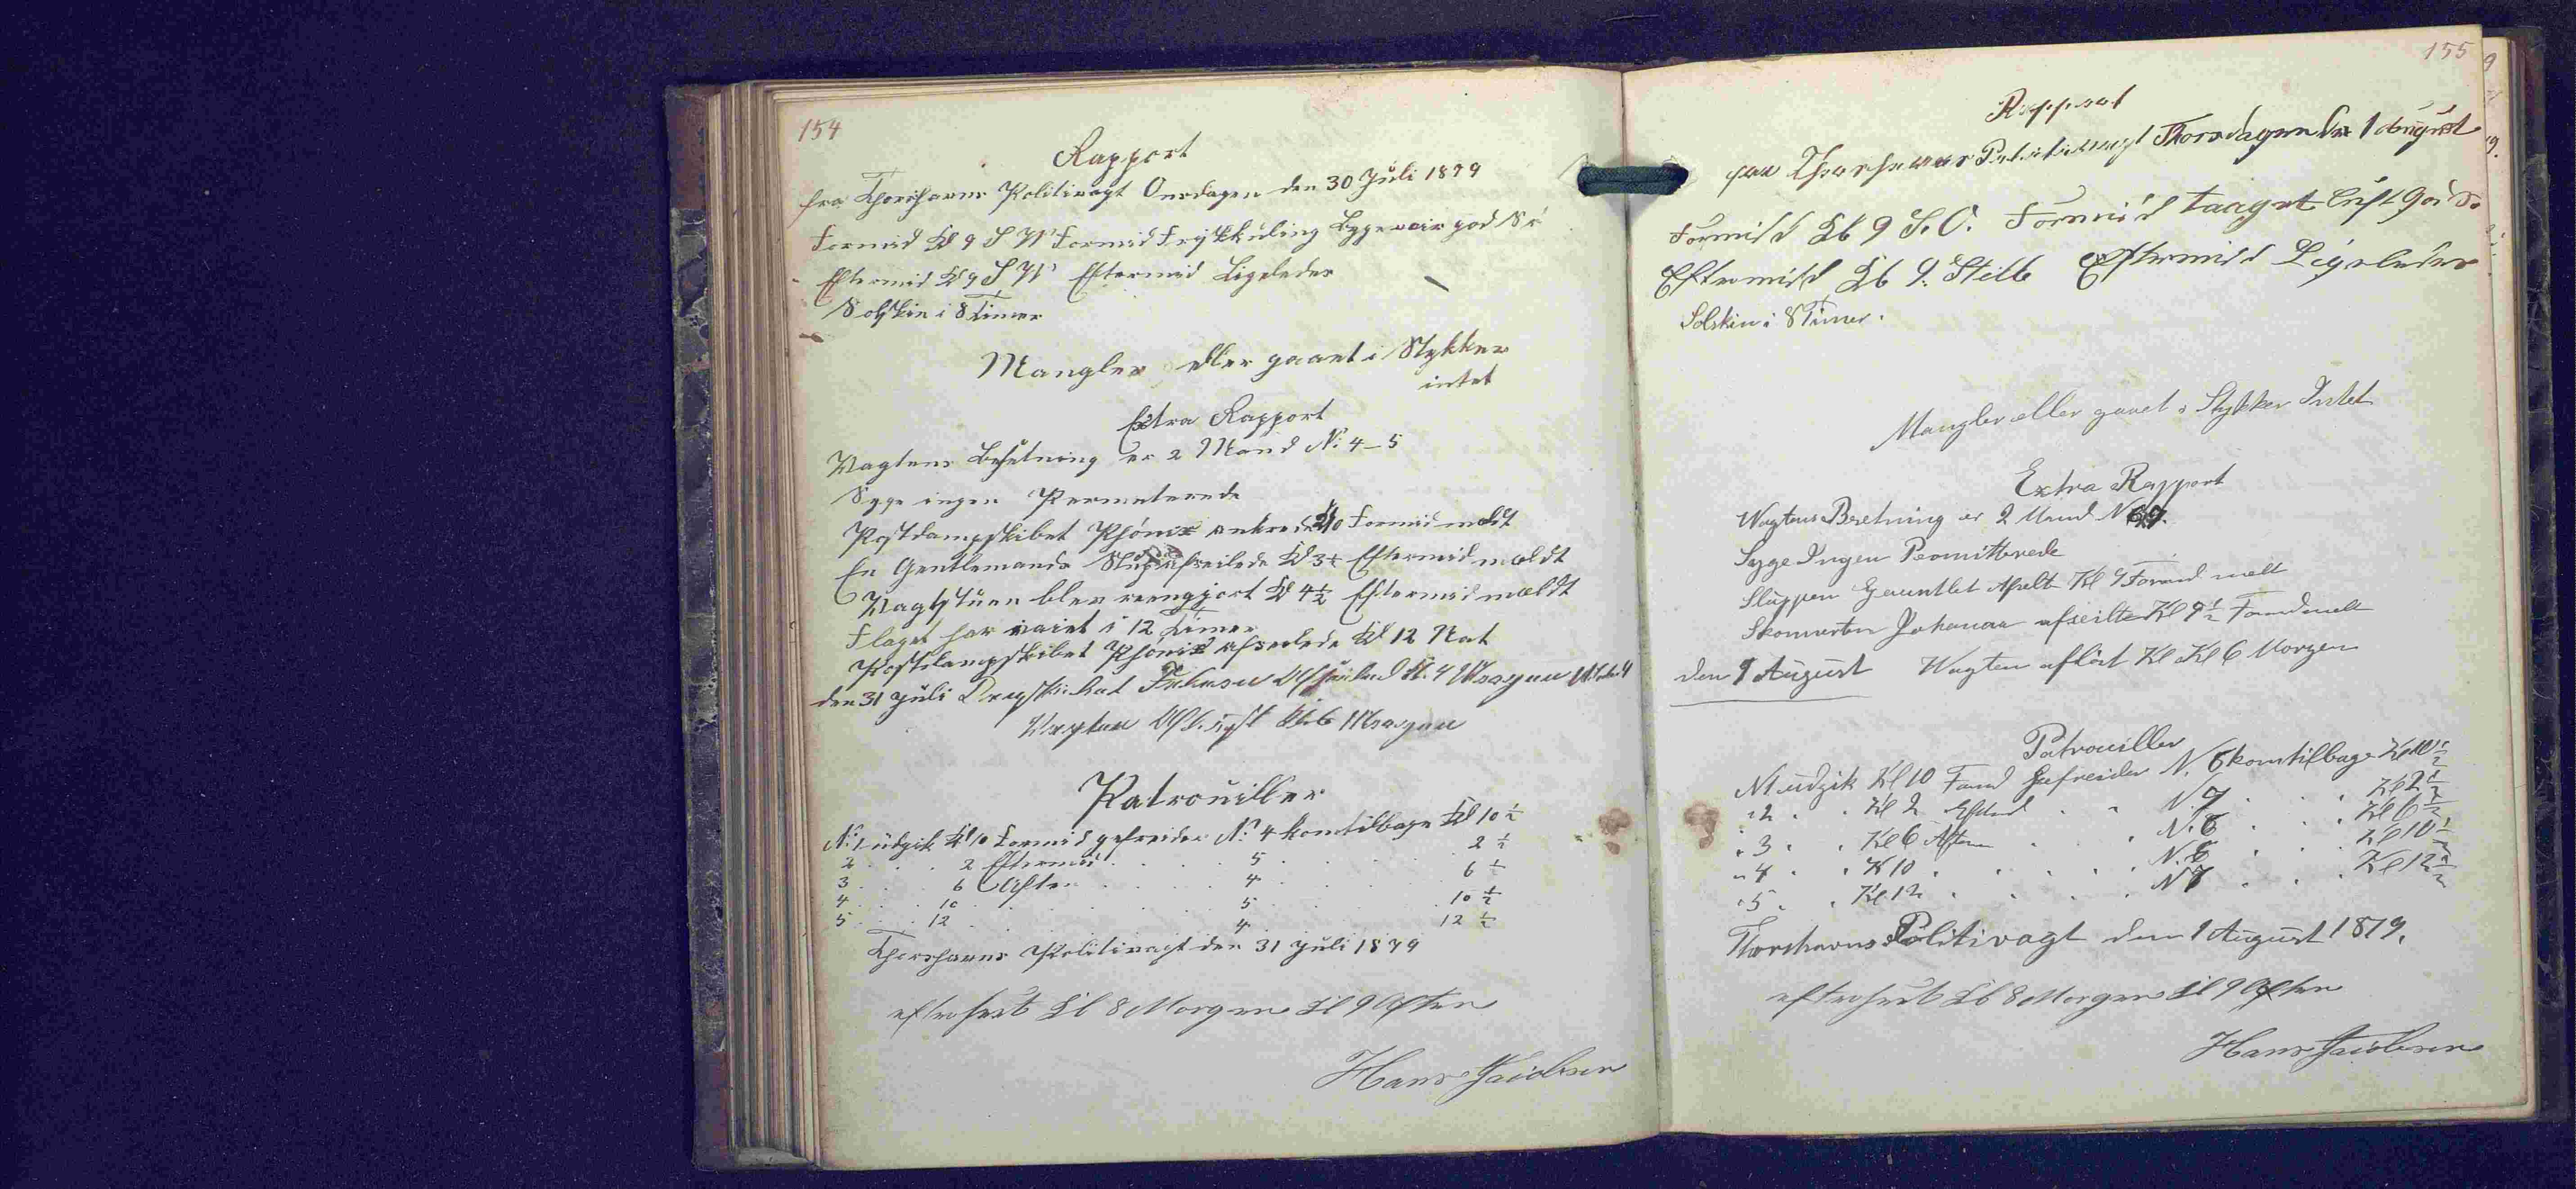 154
Rapport
fra Thorshavns Politivagt Onsdagen den 30 Juli 1879
Formid Kl 9 S W Formid Frisk Kuling Bygeveir god Sö
Eftermid Kl 9 S W Eftermid Ligeledes
Solskin i 8 Timer
Mangler eller gaaet i Stykker
intet
Extra Rapport
Vagtens Besetning er 2 Mand N: 4-5
Syge ingen Permeterede
Postdampskibet Phönix ankrede Formid meldt
En Gentlemands afseilede Kl Eftermid mældt
Vagtstuen blev reengjort Kl 4½ Eftermid mældt
Flaget har vaiet i 12 Timer
Postdampskibet Phönix afseilede Kl 12 Nat
den 31 Juli Morgen
Vagten Kl 6 Morgen
Patrouiller
No 1 udgik Kl 10 Formid gefreider No 4 kom tilbage Kl 10 ½
2 . . . 2 Eftermid . . . 5 . . . 2 ½
3 . . . 6 Aften . . . 4 . . . 6 ½
4 . . . 10 . . . 5 . . . 10 ½
5 . . . 12 . . . 4 . . . 12 ½
Thorshavns Politivagt den 31 Juli 1879
efterseet Kl 8 Morgen Kl 9 Aften
Hans Jacobsen
155
Rapport
fra Thorshavns Politivagt Thorsdagen den 1 August
Formidd Kl 9 S. O. Formid taaget Luft god So
Eftermidd Kl 9. Stille Eftermidd Ligeledes
Solskin i 8 Timer.
Mangler eller gaaet i Stykker Intet
Extra Rapport
Wagtens Besetning er 2 Mand N
Syge Ingen Peomitterede
Sluppen Gauntlet Kl 9 Formd melt
Skonnerten Johanna afseilte Kl 9½ Formd melt
den 1 August Wagten aflöst Kl Kl 6 Morgen
Patrouiller
N 1 udgik Kl 10 Formd Gefreider N. 6 kom tilbage Kl 10½
" 2 . . Kl 2 Efterd . . N. 7 . . . Kl 2½
" 3 . . Kl 6 Aften . . . N. 6 . . . Kl 6½
" 4 . . Kl 10 . . . . N. 6 . . . Kl 10½
" 5 . . Kl 12 . . . . N 7 . . . Kl 12½
Thorshavns Politivagt den 1 August 1879.
efterseet Kl 8 Morgen Kl 9 Aften
Hans Jacobsen